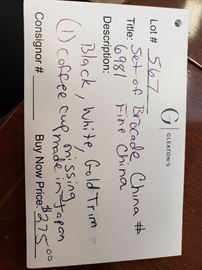 G
GLEATON'S
Lot # 567
Title: Set of Brocade China #
6981 Fine China
Description:
Black, White, Gold Trim
(1) coffee cup missing
made in Japan
Consignor #
Buy Now Price: $275.00